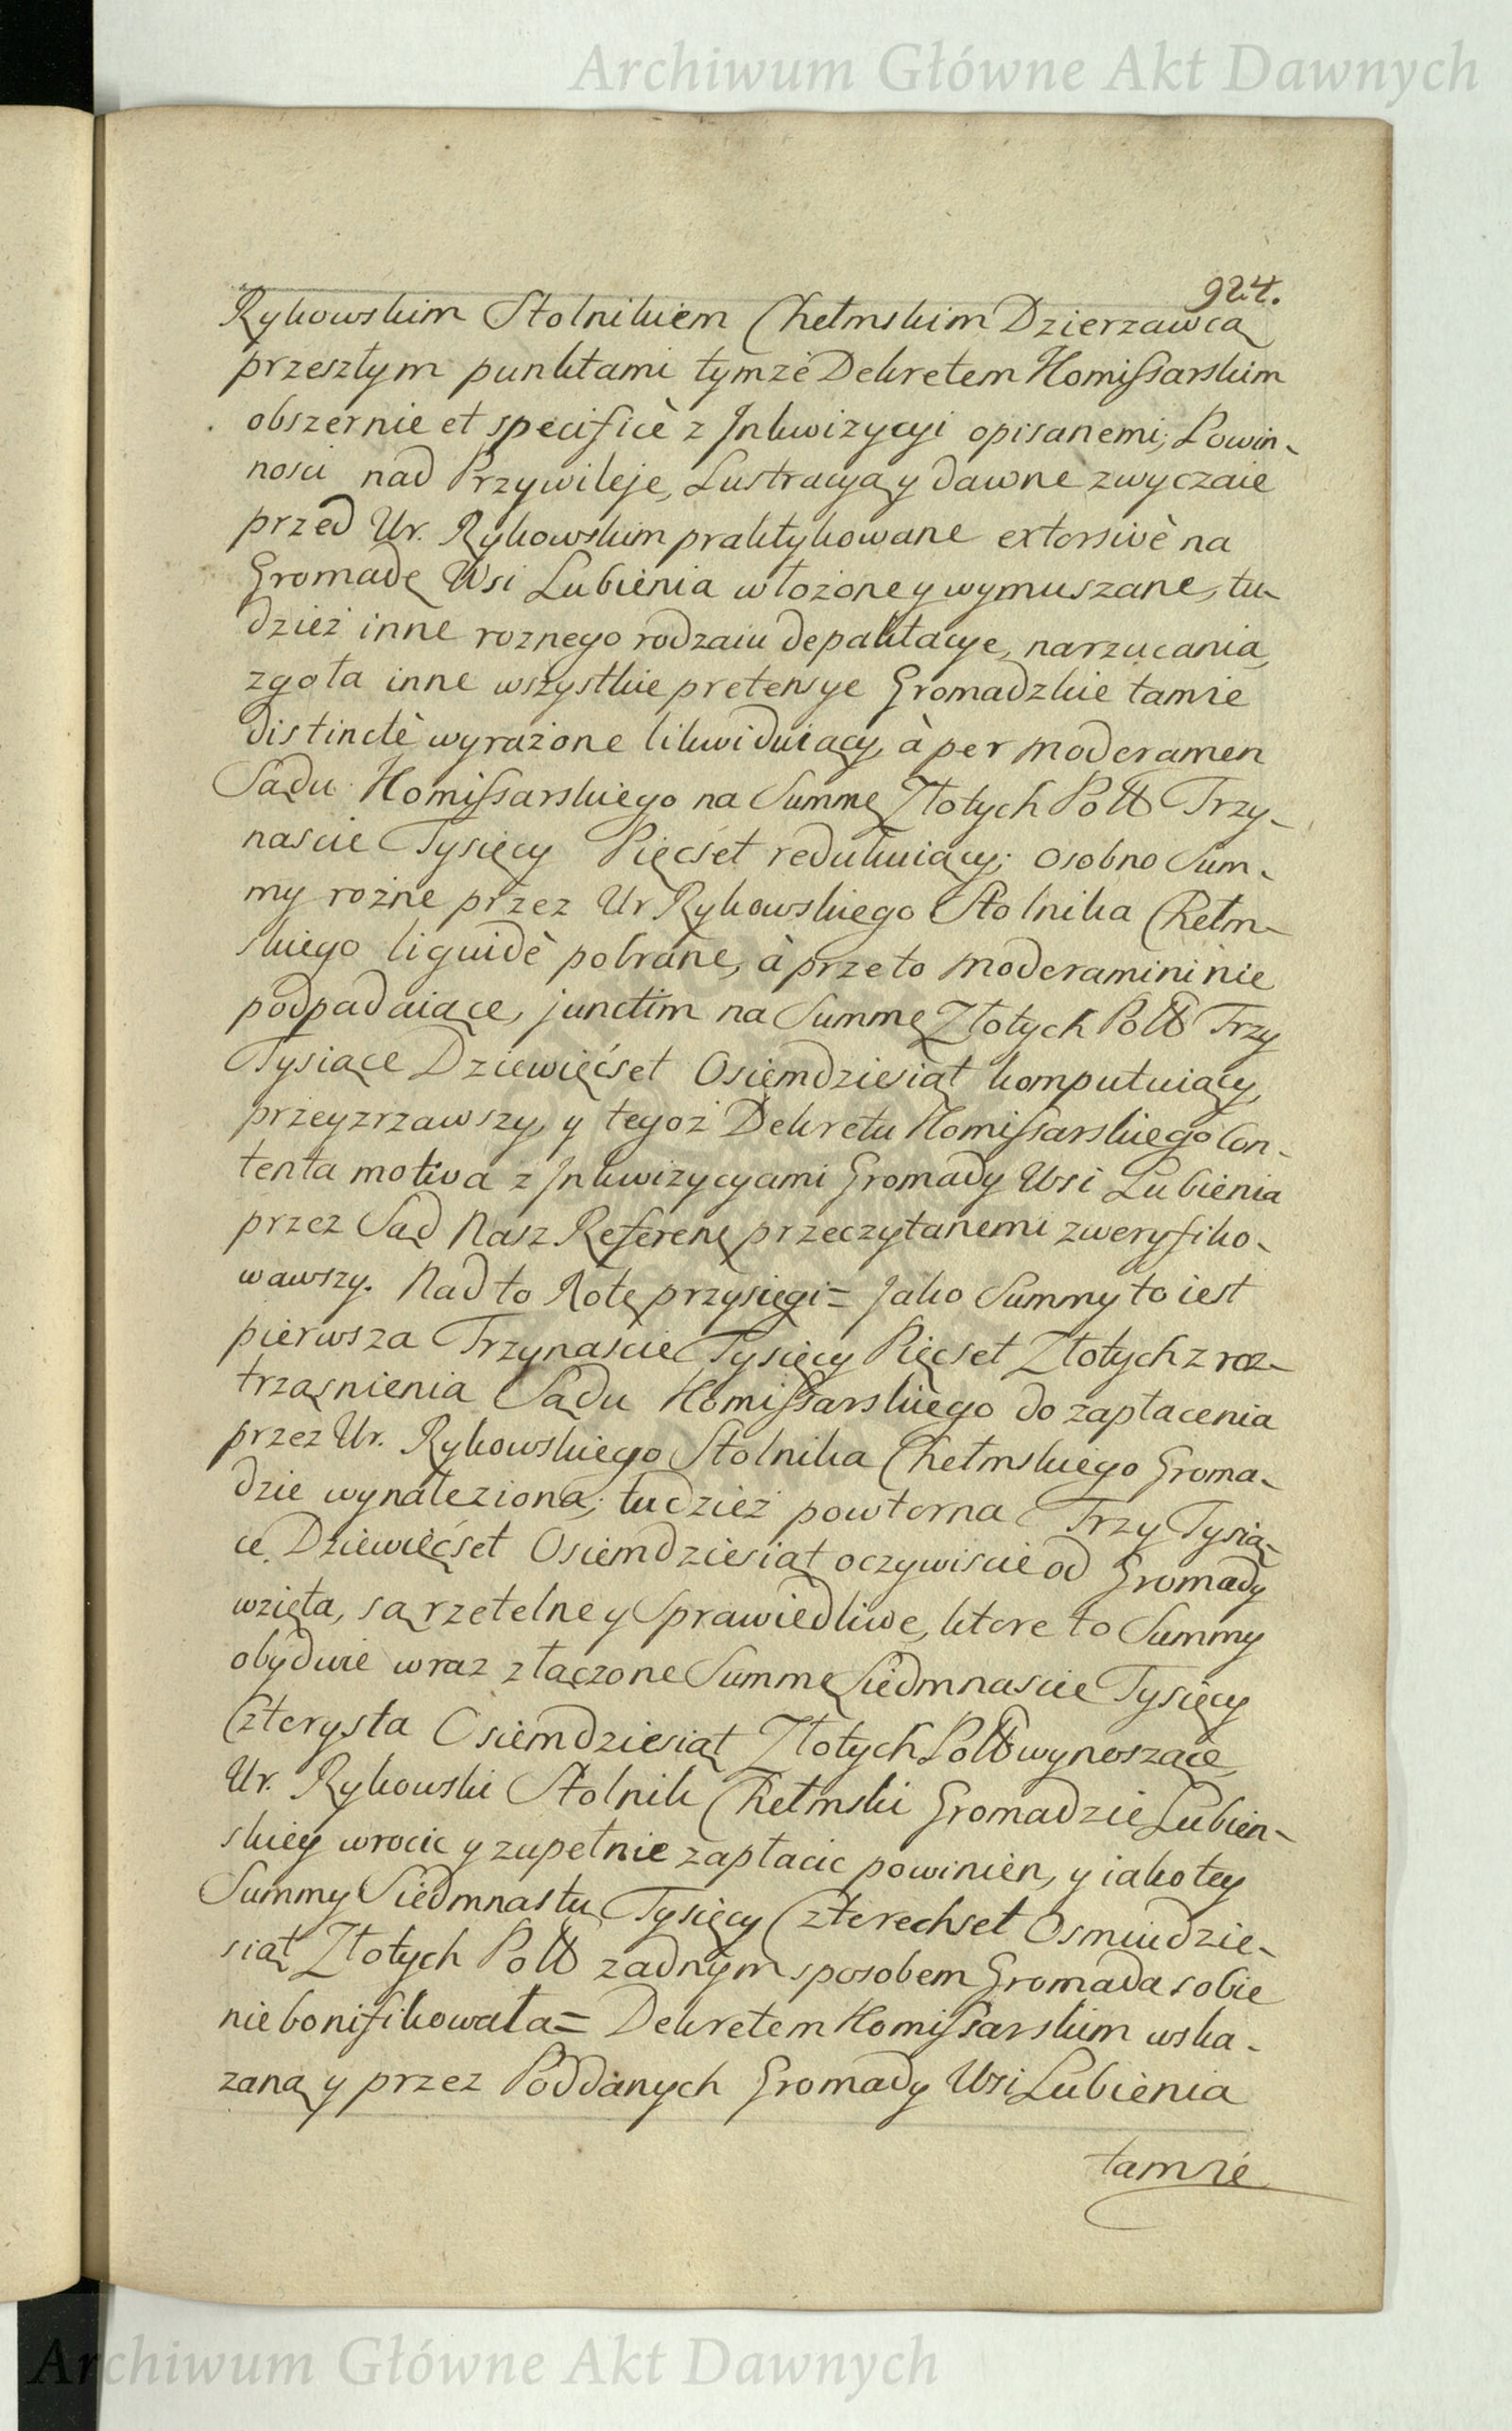 Archiwum Główne Akt Dawnych
924.
Rykowskim Stolnikiem Chełmskim Dzierzawcą
przeszłym punktami tymże Dekretem Komissarskim
obszernie et specificè z Inkwizycyi opisanemi, Powin-
nosci nad Przywileje, Lustracyą y dawne zwyczaie
przed Ur. Rykowskim praktykowane extorsivè na
Gromadę Wsi Lubienia włożone y wymuszane, tu-
dzież inne roznego rodzaiu depaktacye, narzucania,
zgoła inne wszystkie pretensye Gromadzkie tamże
distinctè wyrażone likwiduiący, à per moderamen
Sądu Komissarskiego na Summę Złotych Polł Trzy-
nascie Tysięcy Pięcset redukuiący; osobno Sum-
my rożne przez Ur Rykowskiego Stolnika Chełm-
skiego liquidè pobrane, à przeto moderamini nie
podpadaiące, junctim na Summę Złotych Polł Trzy
Tysiące Dziewięćset Osiemdziesiąt komputuiący,
przeyzrzawszy, y tegoż Dekretu Komissarskiego Con-
tenta motiva z Inkwizycyami Gromady Wsi Lubienia
przez Sąd Nasz Referen̨ przeczytanemi zweryfiko-
wawszy. Nad to Rotę przysięgi = Jako Summy to iest
pierwsza Trzynascie Tysięcy Pięcset Złotych z roz-
trząsnienia Sądu Komissarskiego do zapłacenia
przez Ur. Rykowskiego Stolnika Chełmskiego Groma-
dzie wynaleziona; tudzież powtorna Trzy Tysią-
ce Dziewięćset Osiemdziesiąt oczywiscie od Gromady
wzięta, są rzetelne y Sprawiedliwe, ktore to Summy
obydwie wraz złączone Summę Siedmnascie Tysięcy
Czterysta Osiemdziesiąt Złotych Polł wynoszące,
Ur. Rykowski Stolnik Chełmski Gromadzie Lubien-
skiey wrocic y zupełnie zapłacic powinien, y iako tey
Summy Siedmnastu Tysięcy Czterechset Osmiudzie-
siąt Złotych Polł zadnym sposobem Gromada sobie
nie bonifikowała = Dekretem Komissarskim wska-
zaną y przez Poddanych Gromady Wsi Lubienia
tamże
Archiwum Główne Akt Dawnych